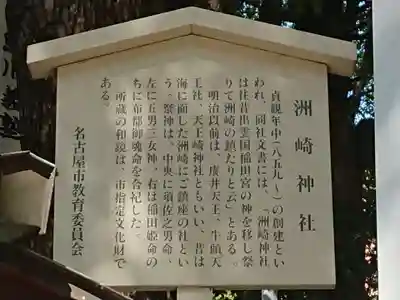 洲崎神社
貞観年中(八五九〜)の創建とい
われ、同社文書には、「洲崎神社
は往昔出雲国稲田宮の神を移し祭
りて洲崎の鎮たりと云」とある。
明治以前は、広井天王、牛頭天
王社、天王崎神社ともいい、昔は
海に面した洲崎にご鎮座の社とい
う。祭神は、中央に須佐之男命、
左に五男三女神、右は稲田姫命の
ちに布都御魂命を合祀した。
所蔵の和鏡は、市指定文化財で
ある。
名古屋市教育委員会